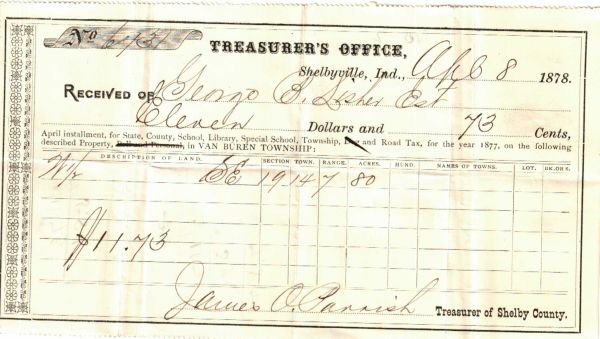 No 673
TREASURER'S OFFICE,
Shelbyville, Ind., Apl 8 1878.
RECEIVED OF George B. Lisher Est
Eleven Dollars and 73 Cents,
April installment, for State, County, School, Library, Special School, Township, Dog and Road Tax, for the year 1877, on the following
described Property, Poll and Personal, in VAN BUREN TOWNSHIP:
DESCRIPTION OF LAND. SECTION TOWN. RANGE. ACRES. HUND. NAMES OF TOWNS. LOT. BK.OR S.
W/2 SE 19 14 7 80
$11.73
James O. Parrish Treasurer of Shelby County.